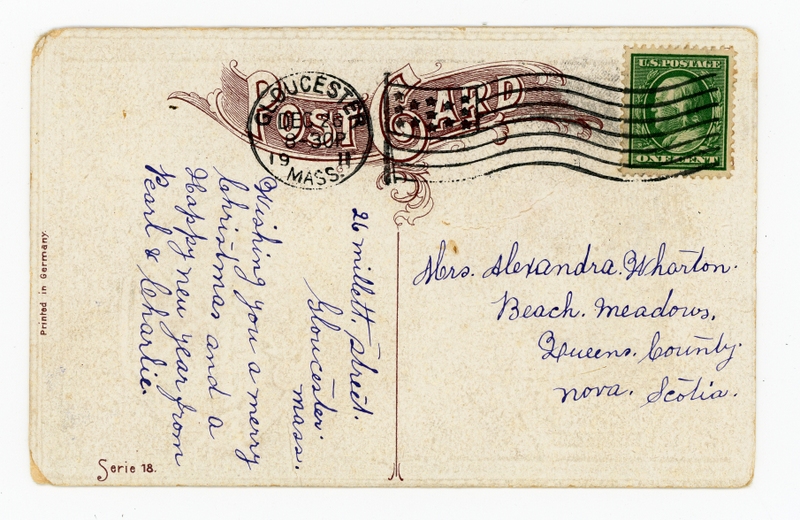 POST CARD
GLOUCESTER
DEC 26
8-30P
19 11
MASS.
U.S. POSTAGE
ONE CENT
26 millett. street.
Gloucester.
mass.
Wishing you a merry
Christmas and a
Happy new year from
Pearl & Charlie.
Mrs. Alexandra. Wharton.
Beach. meadows.
Queens. County.
nova. Scotia.
Printed in Germany.
Serie 18.